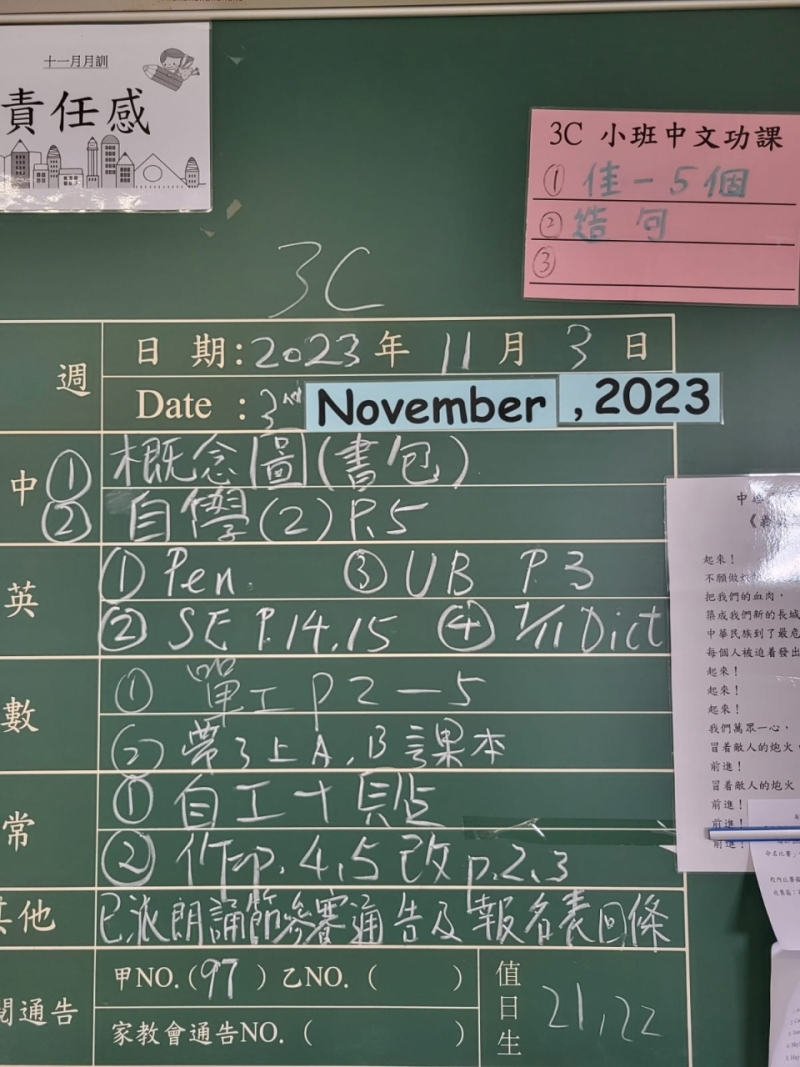 十一月月訓
責任感
3C 小班中文功課
① 佳一5個
② 造句
③
3C
週
日期:2023年 11月 3日
Date : 3rd November , 2023
中 ① 概念圖(書包)
② 自學(2) P.5
英 ① Pen. ③ UB P.3
② SE P.14,15 ④ 7/11 Dict
數 ① 單工 P2—5
② 帶3上A,B課本
常 ① 自工+貼
② 作p.4,5改p.2,3
其他 已派朗誦節參賽通告及報名表回條
閱通告 甲NO.(97) 乙NO.( )
家教會通告NO.( )
值日生 21,22
起來!
不願做
把我們的血肉,
築成我們新的長城
中華民族到了最危
每個人被迫着發出
起來!
起來!
起來!
我們萬眾一心,
冒着敵人的炮火,
前進!
冒着敵人的炮火
前進!
前進!
前進!